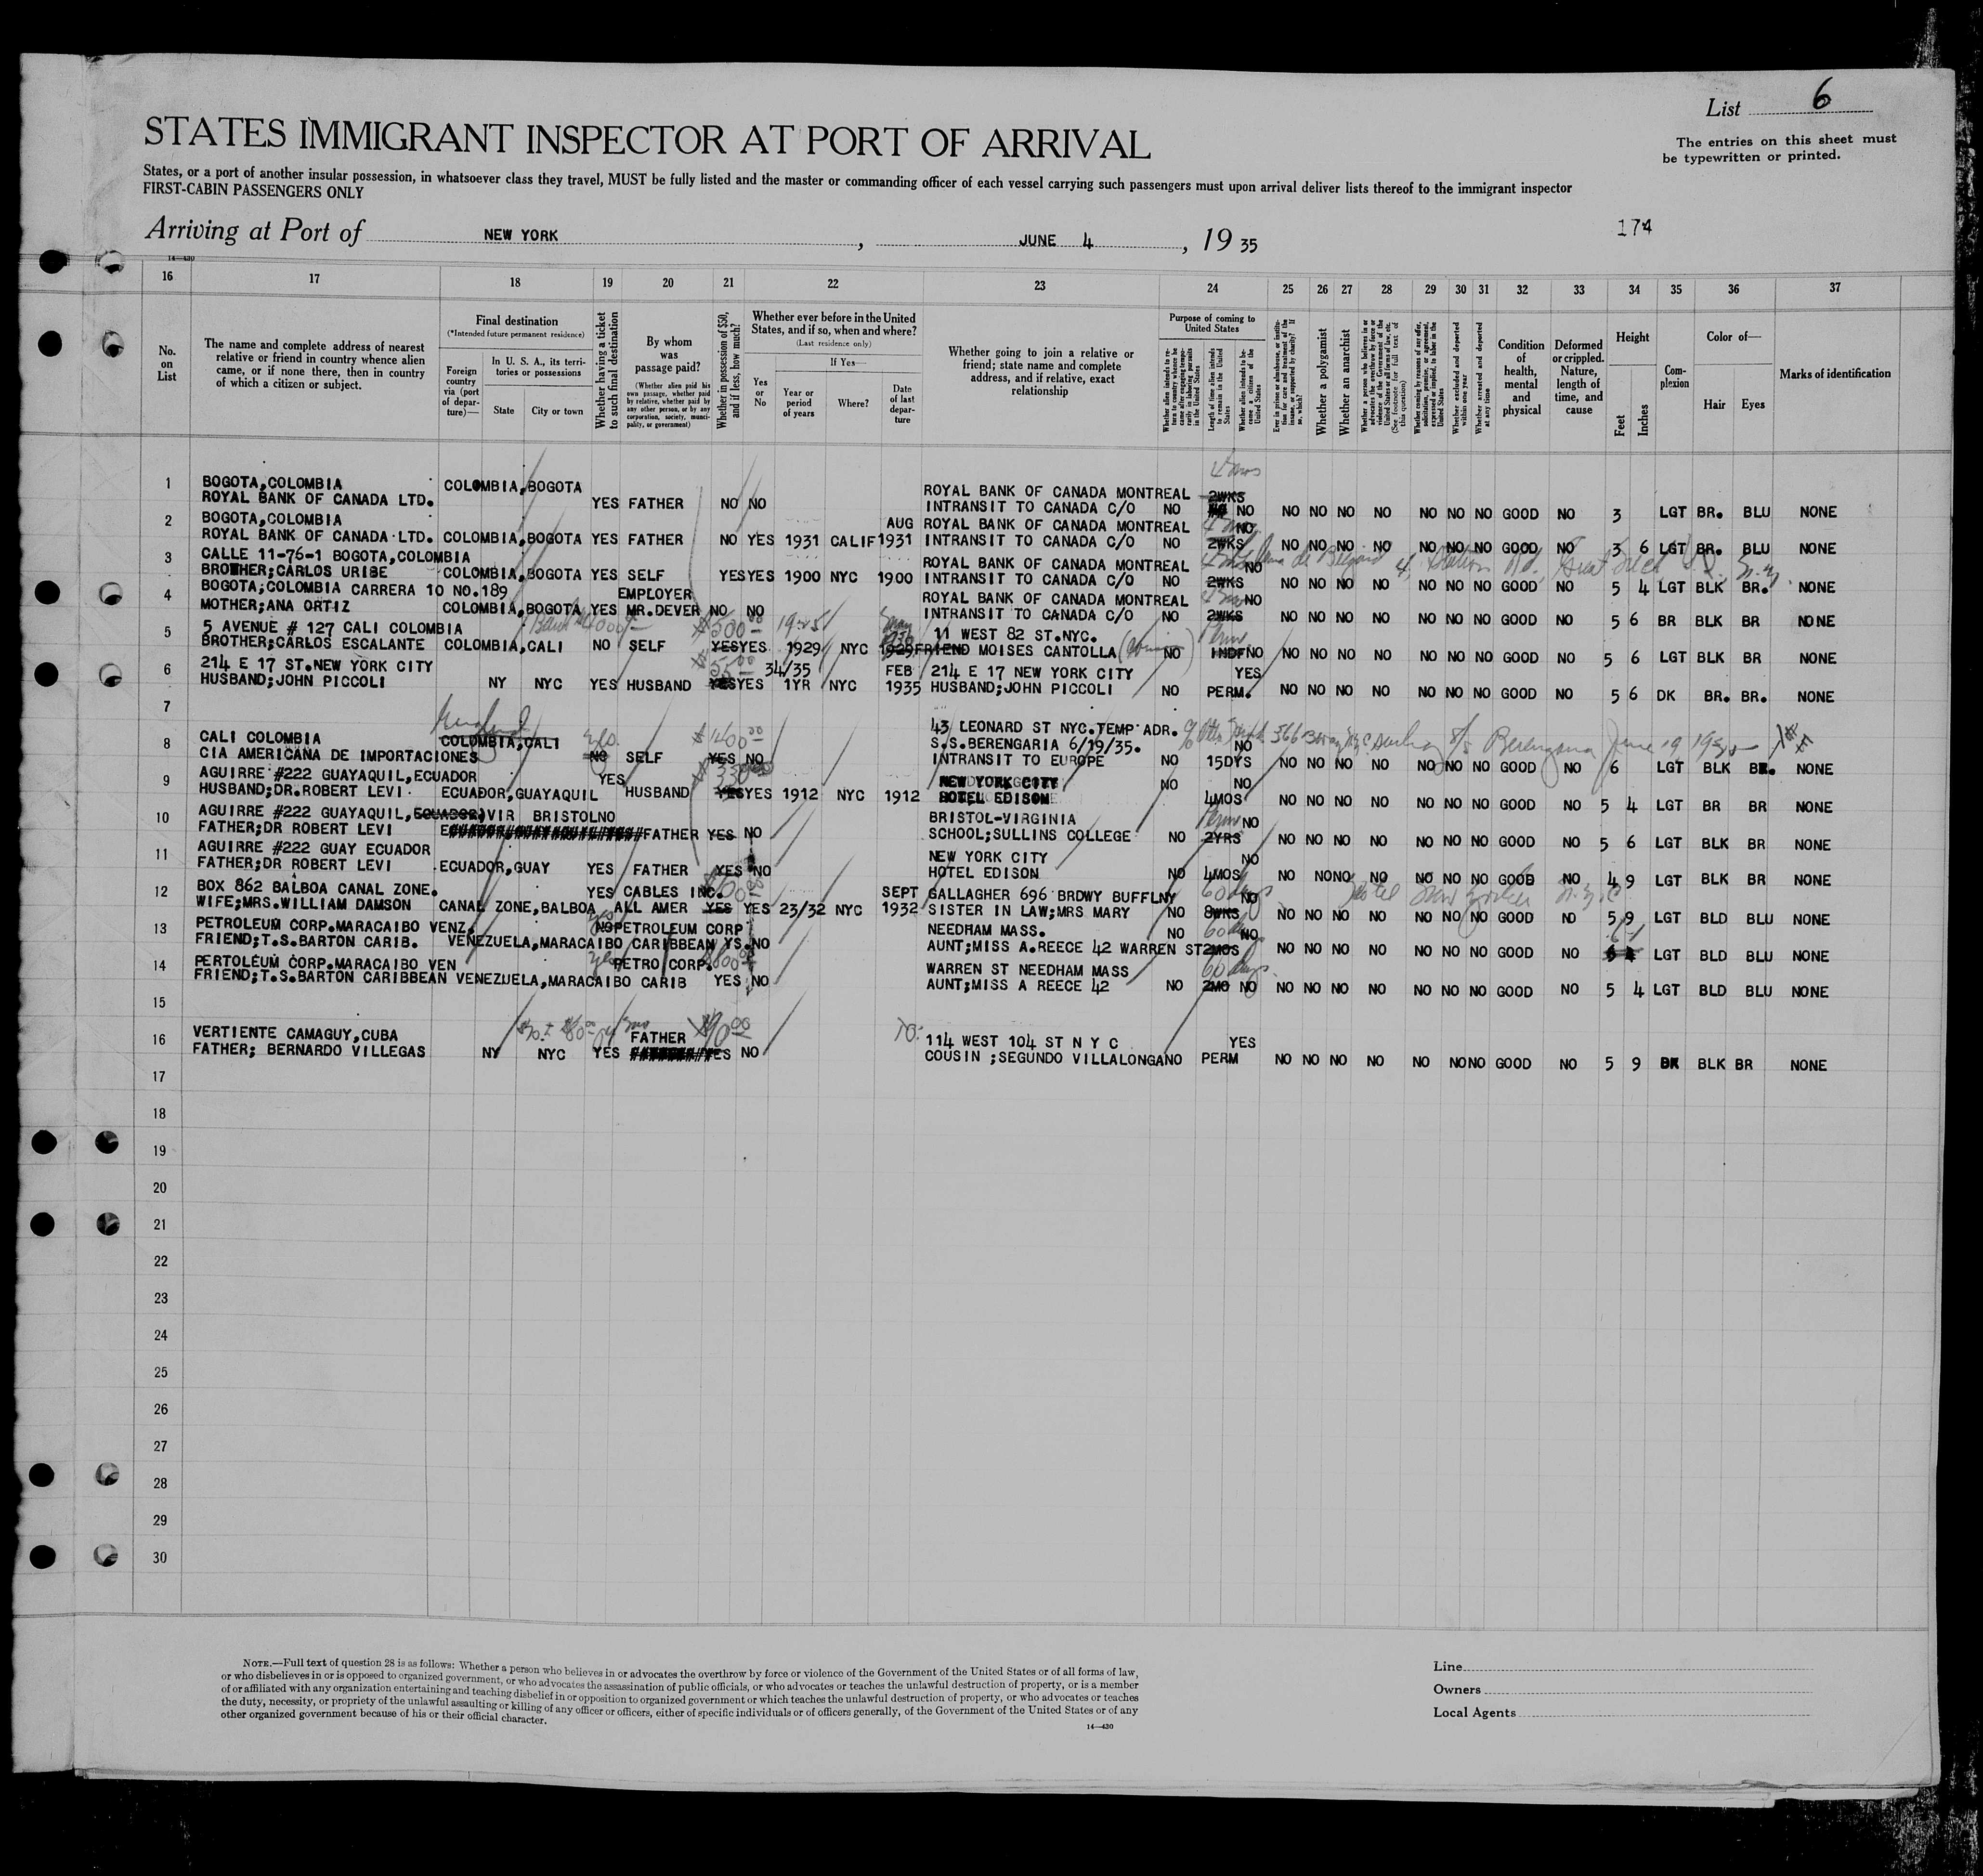 List 6
STATES IMMIGRANT INSPECTOR AT PORT OF ARRIVAL
The entries on this sheet must
be typewritten or printed.
States, or a port of another insular possession, in whatsoever class they travel, MUST be fully listed and the master or commanding officer of each vessel carrying such passengers must upon arrival deliver lists thereof to the immigrant inspector
FIRST-CABIN PASSENGERS ONLY
174
Arriving at Port of NEW YORK, JUNE 4, 19 35
14—430
16 17 18 19 20 21 22 23 24 25 26 27 28 29 30 31 32 33 34 35 36 37
No. on List
The name and complete address of nearest relative or friend in country whence alien came, or if none there, then in country of which a citizen or subject.
Final destination
(*Intended future permanent residence)
Foreign country via (port of departure)—
In U. S. A., its territories or possessions
State
City or town
Whether having a ticket to such final destination
By whom was passage paid?
(Whether alien paid his own passage, whether paid by relative, whether paid by any other person, or by any corporation, society, municipality, or government)
Whether in possession of $50, and if less, how much?
Whether ever before in the United States, and if so, when and where?
(Last residence only)
If Yes—
Yes or No
Year or period of years
Where?
Date of last departure
Whether going to join a relative or friend; state name and complete address, and if relative, exact relationship
Purpose of coming to United States
Length of time alien intends to remain in the United States
Whether alien intends to become a citizen of the United States
Whether a polygamist
Whether an anarchist
Whether excluded and deported within one year
Whether arrested and deported at any time
Condition of health, mental and physical
Deformed or crippled. Nature, length of time, and cause
Height
Feet
Inches
Complexion
Color of—
Hair
Eyes
Marks of identification
4 mos
1 BOGOTA,COLOMBIA COLOMBIA,BOGOTA ROYAL BANK OF CANADA MONTREAL 2WKS
ROYAL BANK OF CANADA LTD. YES FATHER NO NO INTRANSIT TO CANADA C/O NO NO NO NO NO NO NO NO NO GOOD NO 3 LGT BR. BLU NONE
2 BOGOTA,COLOMBIA AUG ROYAL BANK OF CANADA MONTREAL NO
ROYAL BANK OF CANADA LTD. COLOMBIA,BOGOTA YES FATHER NO YES 1931 CALIF 1931 INTRANSIT TO CANADA C/O NO 2WKS NO NO NO NO NO NO NO GOOD NO 3 6 LGT BR. BLU NONE
3 CALLE 11-76-1 BOGOTA,COLOMBIA ROYAL BANK OF CANADA MONTREAL NO
BROTHER;CARLOS URIBE COLOMBIA,BOGOTA YES SELF YES YES 1900 NYC 1900 INTRANSIT TO CANADA C/O NO 2WKS NO NO NO NO NO NO NO GOOD NO 5 4 LGT BLK BR. NONE
4 BOGOTA;COLOMBIA CARRERA 10 NO.189 EMPLOYER ROYAL BANK OF CANADA MONTREAL NO
MOTHER;ANA ORTIZ COLOMBIA,BOGOTA YES MR.DEVER NO NO INTRANSIT TO CANADA C/O NO 2WKS NO NO NO NO NO NO NO GOOD NO 5 6 BR BLK BR NONE
5 5 AVENUE # 127 CALI COLOMBIA 11 WEST 82 ST.NYC.
BROTHER;CARLOS ESCALANTE COLOMBIA,CALI NO SELF YES YES 1929 NYC 1929 FRIEND MOISES CANTOLLA NO INDF NO NO NO NO NO NO NO NO GOOD NO 5 6 LGT BLK BR NONE
6 214 E 17 ST.NEW YORK CITY 34/35 FEB 214 E 17 NEW YORK CITY YES
HUSBAND;JOHN PICCOLI NY NYC YES HUSBAND YES YES 1YR NYC 1935 HUSBAND;JOHN PICCOLI NO PERM. NO NO NO NO NO NO NO GOOD NO 5 6 DK BR. BR. NONE
7
43 LEONARD ST NYC.TEMP ADR.
8 CALI COLOMBIA COLOMBIA,CALI $1400.00 S.S.BERENGARIA 6/19/35. NO
CIA AMERICANA DE IMPORTACIONES NO SELF YES NO INTRANSIT TO EUROPE NO 15DYS NO NO NO NO NO NO NO GOOD NO 6 LGT BLK BR. NONE
9 AGUIRRE #222 GUAYAQUIL,ECUADOR YES NEW YORK CITY NO NO
HUSBAND;DR.ROBERT LEVI ECUADOR,GUAYAQUIL HUSBAND YES YES 1912 NYC 1912 HOTEL EDISON 4MOS NO NO NO NO NO NO NO GOOD NO 5 4 LGT BR BR NONE
10 AGUIRRE #222 GUAYAQUIL,ECUADOR VIR BRISTOL NO BRISTOL-VIRGINIA Perm NO
FATHER;DR ROBERT LEVI FATHER YES NO SCHOOL;SULLINS COLLEGE NO 2YRS NO NO NO NO NO NO NO GOOD NO 5 6 LGT BLK BR NONE
11 AGUIRRE #222 GUAY ECUADOR NEW YORK CITY NO
FATHER;DR ROBERT LEVI ECUADOR,GUAY YES FATHER YES NO HOTEL EDISON NO 4MOS NO NO NO NO NO NO NO GOOD NO 4 9 LGT BLK BR NONE
12 BOX 862 BALBOA CANAL ZONE. YES CABLES INC. SEPT GALLAGHER 696 BRDWY BUFFLNY 60 days NO
WIFE;MRS.WILLIAM DAMSON CANAL ZONE,BALBOA ALL AMER YES YES 23/32 NYC 1932 SISTER IN LAW;MRS MARY NO 8WKS NO NO NO NO NO NO NO GOOD NO 5 9 LGT BLD BLU NONE
13 PETROLEUM CORP.MARACAIBO VENZ. NO PETROLEUM CORP NEEDHAM MASS. NO NO
FRIEND;T.S.BARTON CARIB. VENEZUELA,MARACAIBO CARIBBEAN YS.NO AUNT;MISS A.REECE 42 WARREN ST 2MOS NO NO NO NO NO NO NO GOOD NO LGT BLD BLU NONE
14 PERTOLEUM CORP.MARACAIBO VEN PETRO CORP. WARREN ST NEEDHAM MASS 60 days
FRIEND;T.S.BARTON CARIBBEAN VENEZUELA,MARACAIBO CARIB YES NO AUNT;MISS A REECE 42 NO 2MO NO NO NO NO NO NO NO NO GOOD NO 5 4 LGT BLD BLU NONE
15
16 VERTIENTE CAMAGUY,CUBA FATHER $90.00 114 WEST 104 ST N Y C YES
FATHER; BERNARDO VILLEGAS NY NYC YES YES NO COUSIN ;SEGUNDO VILLALONGA NO PERM NO NO NO NO NO NO NO GOOD NO 5 9 DK BLK BR NONE
17
18
19
20
21
22
23
24
25
26
27
28
29
30
NOTE.—Full text of question 28 is as follows: Whether a person who believes in or advocates the overthrow by force or violence of the Government of the United States or of all forms of law,
or who disbelieves in or is opposed to organized government, or who advocates the assassination of public officials, or who advocates or teaches the unlawful destruction of property, or is a member
of or affiliated with any organization entertaining and teaching disbelief in or opposition to organized government or which teaches the unlawful destruction of property, or who advocates or teaches
the duty, necessity, or propriety of the unlawful assaulting or killing of any officer or officers, either of specific individuals or of officers generally, of the Government of the United States or of any
other organized government because of his or their official character.
14—430
Line
Owners
Local Agents